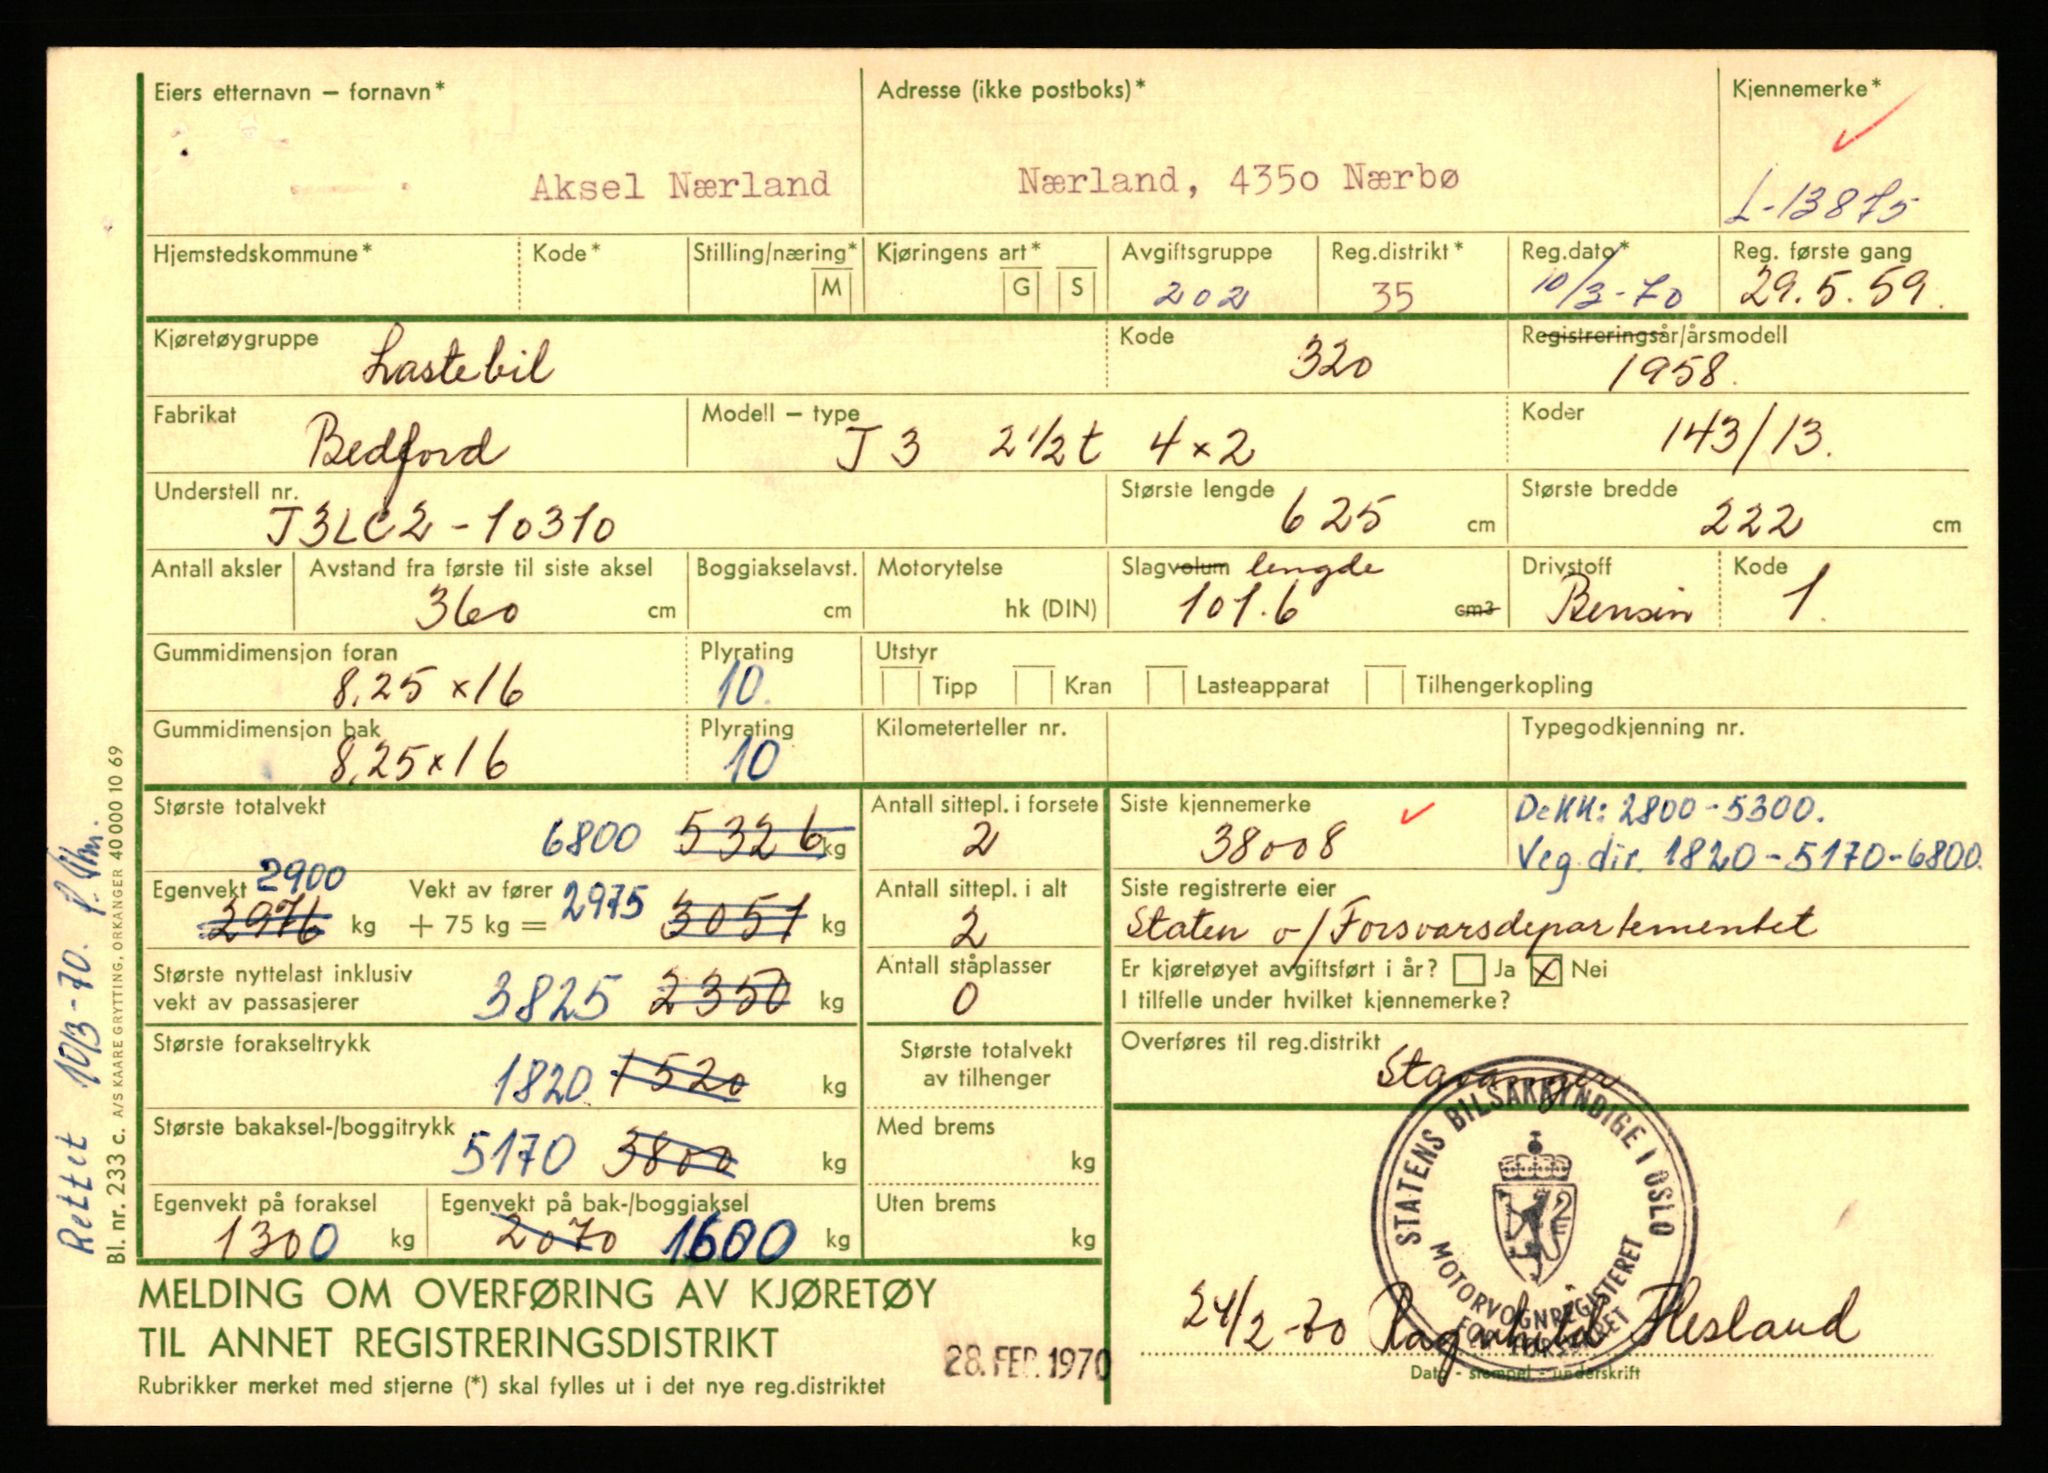 Eiers etternavn – fornavn*
Aksel Nærland
Adresse (ikke postboks)*
Nærland, 4350 Nærbø
Kjennemerke*
L-13875
Hjemstedskommune*
Kode*
Stilling/næring*
M
Kjøringens art*
G S
Avgiftsgruppe
202
Reg.distrikt*
35
Reg.dato*
10/3-70
Reg. første gang
29.5.59.
Kjøretøygruppe
Lastebil
Kode
320
Registreringsår/årsmodell
1958.
Fabrikat
Bedford
Modell – type
J3 2 1/2 t 4x2
Koder
143/13.
Understell nr.
J3LC2-10310
Største lengde
625 cm
Største bredde
222 cm
Antall aksler
Avstand fra første til siste aksel
360 cm
Boggiakselavst.
cm
Motorytelse
hk (DIN)
Slagvolum lengde
101.6 cm3
Drivstoff
Bensin
Kode
1.
Gummidimensjon foran
8,25 x 16
Plyrating
10.
Utstyr
Tipp Kran Lasteapparat Tilhengerkopling
Gummidimensjon bak
8,25 x 16
Plyrating
10
Kilometerteller nr.
Typegodkjenning nr.
Største totalvekt
6800 5326 kg
Egenvekt 2900
2976 kg
Vekt av fører
+ 75 kg = 2975 3051 kg
Største nyttelast inklusiv
vekt av passasjerer
3825 2350 kg
Største forakseltrykk
1820 1520 kg
Største bakaksel-/boggitrykk
5170 3800 kg
Egenvekt på foraksel
1300 kg
Egenvekt på bak-/boggiaksel
2070 1600 kg
Antall sittepl. i forsete
2
Antall sittepl. i alt
2
Antall ståplasser
0
Største totalvekt
av tilhenger
Med brems
kg
Uten brems
kg
Siste kjennemerke
38008
Dekk: 2800-5300.
Veg.dir. 1820-5170-6800.
Siste registrerte eier
Staten v/Forsvarsdepartementet
Er kjøretøyet avgiftsført i år? Ja x Nei
I tilfelle under hvilket kjennemerke?
Overføres til reg.distrikt
Stavanger
STATENS BILSAKKYNDIGE I OSLO
MOTORVOGNREGISTERET
24/2-70 Ragnhild Hesland
Dato - stempel - underskrift
MELDING OM OVERFØRING AV KJØRETØY
TIL ANNET REGISTRERINGSDISTRIKT
Rubrikker merket med stjerne (*) skal fylles ut i det nye reg.distriktet
28. FEB. 1970
Rettet 10/3-70.
Bl. nr. 233 c. A/S KAARE GRYTTING, ORKANGER 40 000 10 69